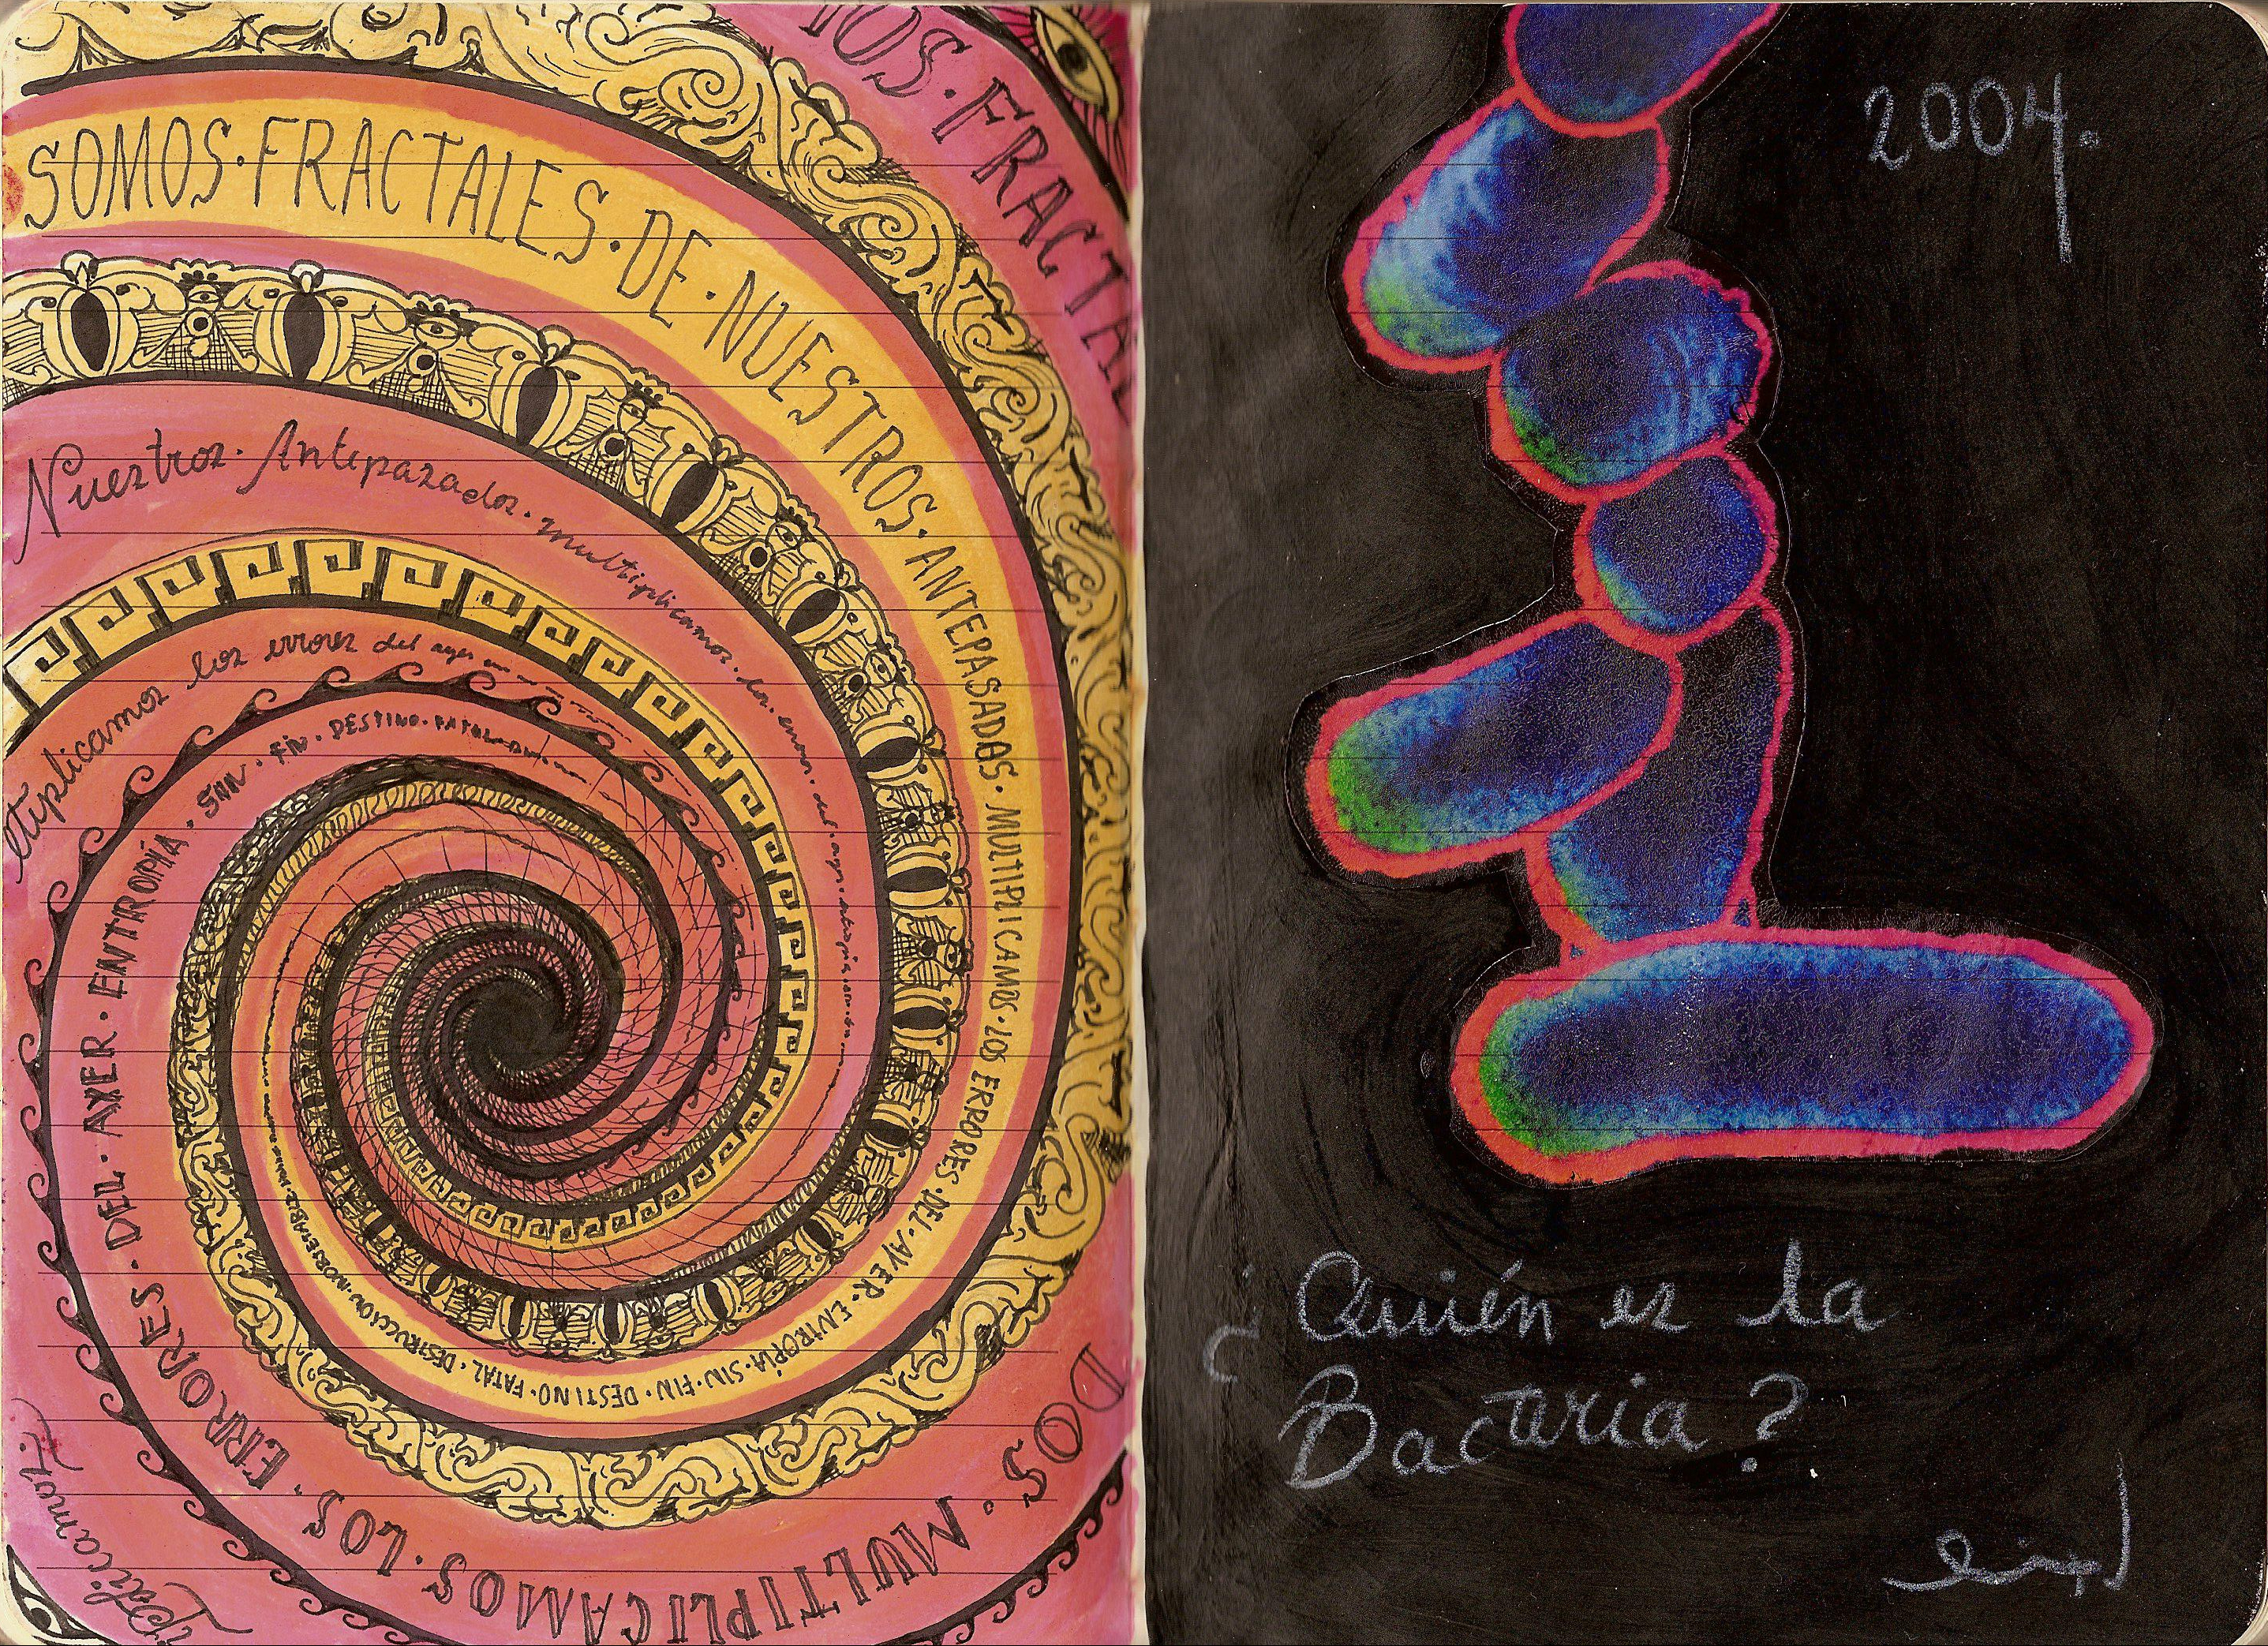 SOMOS·FRACTALES·DE·NUESTROS·ANTEPASADOS·MULTIPLICAMOS·LOS ERRORES·DEL·AYER·ENTROPÍA·SIN·FIN·DESTINO·FATAL·DESTRUCCIÓN
OS·FRACTAL
DOS·MULTIPLICAMOS·LOS·ERRORES·DEL·AYER·ENTROPÍA·SIN·FIN·DESTINO·FATAL
Nuestros·Antipasados·multiplicamos·los·errores·del·ayer
tiplicamos los errores del ayer
iplicamos
2004.
¿Quién es la
Bacteria?